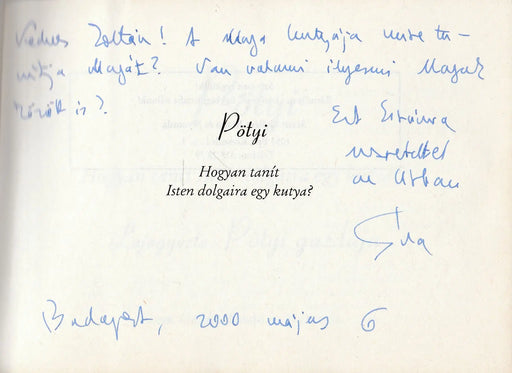 Kedves Zoltán! A Maga kutyája mire ta-
nítja Magát? Van valami ilyesmi Maguk
között is?
Pötyi
Hogyan tanít
Isten dolgaira egy kutya?
szeretettel
az Úrban
Budapest, 2000 május 6